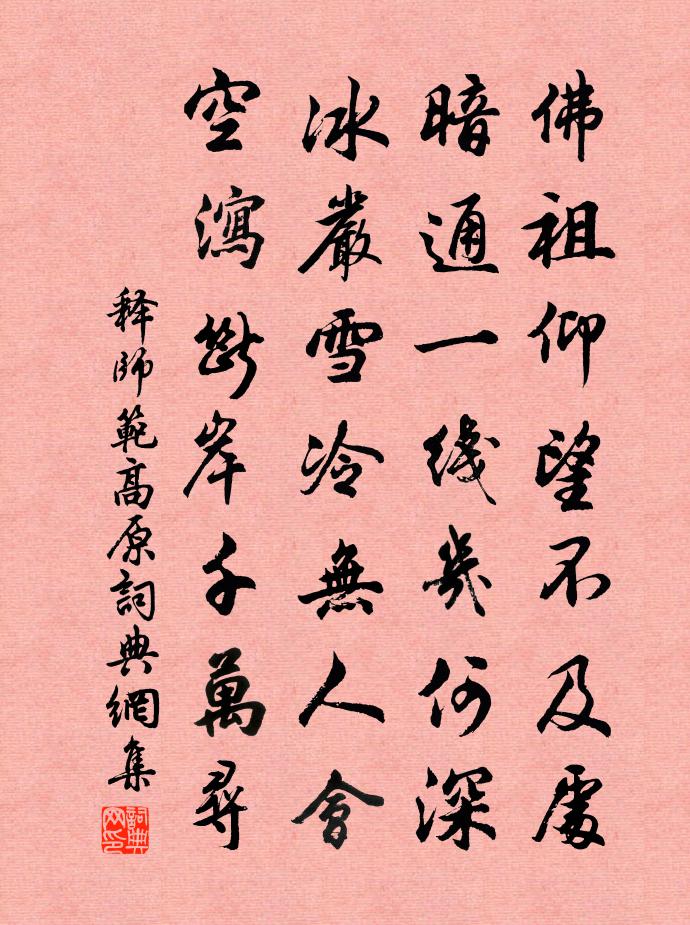 佛祖仰望不及處
暗通一线幾何深
冰嚴雪冷無人會
空瀉斷岸千萬尋
释師範高原詞典網集
詞典网印